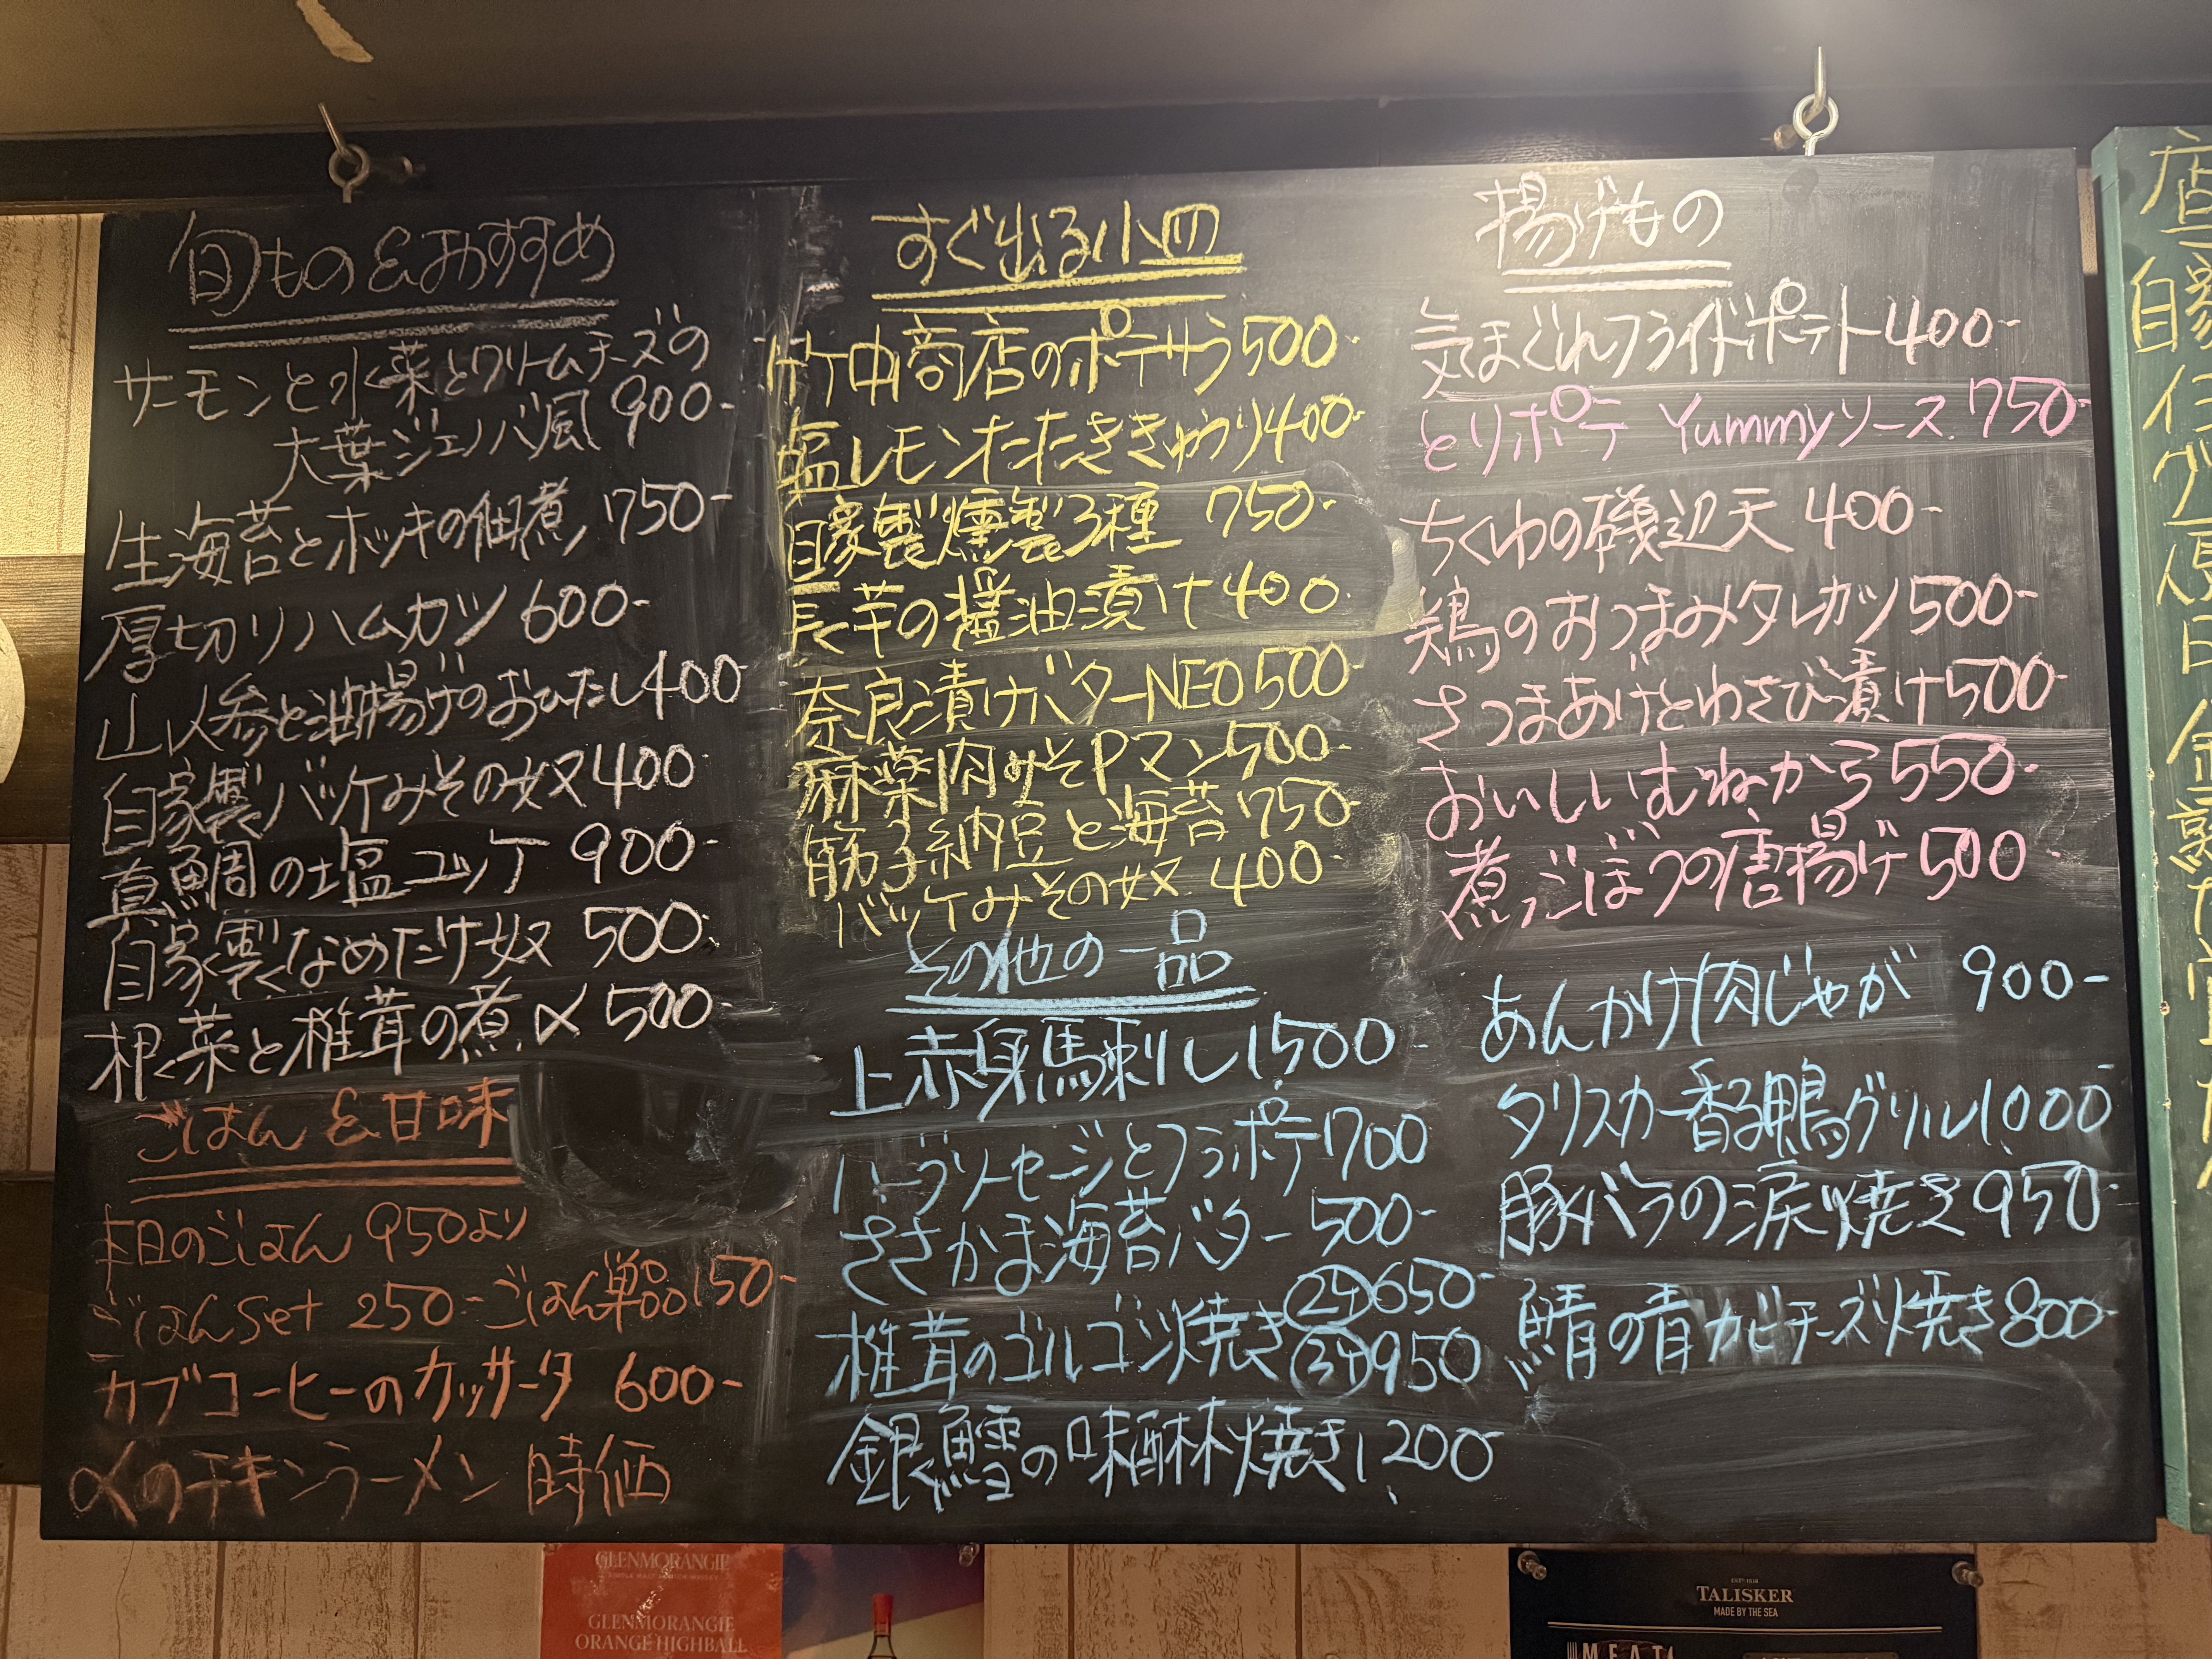 旬もの&おすすめ
サーモンと水菜とクリームチーズの
大葉ジェノバ風 900-
生海苔とホッキの佃煮 750-
厚切りハムカツ 600-
山人参と油揚げのおひたし 400
自家製バッケみその奴 400
真鯛の塩ユッケ 900-
自家製なめたけ奴 500
根菜と椎茸の煮〆 500
ごはん&甘味
本日のごはん 950より
ごはんset 250- ごはん単品 150-
カブコーヒーのカッサータ 600-
〆のチキンラーメン 時価
すぐ出る小皿
竹中商店のポテサラ 500-
塩レモンたたききゅうり 400-
自家製燻製3種 750-
長芋の醤油漬け 400
奈良漬けバターNEO 500-
麻薬肉みそPマン 500-
筋子納豆と海苔 750-
バッケみその奴 400-
その他の一品
上赤身馬刺し 1,500-
ハーブソーセージとフラポテ 700
ささかま海苔バター 500-
椎茸のゴルゴンゾ焼き (2ケ)650-
(3ケ)950
銀鱈の味醂焼き 1,200-
揚げもの
気まぐれフライドポテト 400-
とりポテ Yummyソース 750-
ちくわの磯辺天 400-
鶏のおつまみタレカツ 500-
さつまあげとわさび漬け 500-
おいしいむねから 550-
煮ごぼうの唐揚げ 500-
あんかけ肉じゃが 900-
タリスカー香る鴨グリル 1,000
豚バラの涙焼き 950-
鯖の青カビチーズ焼き 800-
GLENMORANGIE
GLENMORANGIE
ORANGE HIGHBALL
TALISKER
MADE BY THE SEA
MEAT